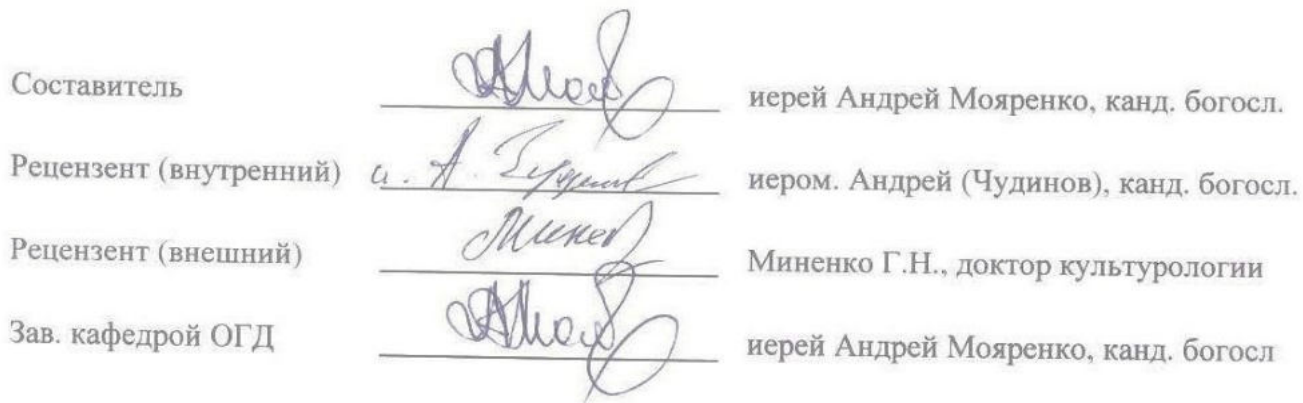 Составитель иерей Андрей Мояренко, канд. богосл.
Рецензент (внутренний) и. А. иером. Андрей (Чудинов), канд. богосл.
Рецензент (внешний) Миненко Г.Н., доктор культурологии
Зав. кафедрой ОГД иерей Андрей Мояренко, канд. богосл